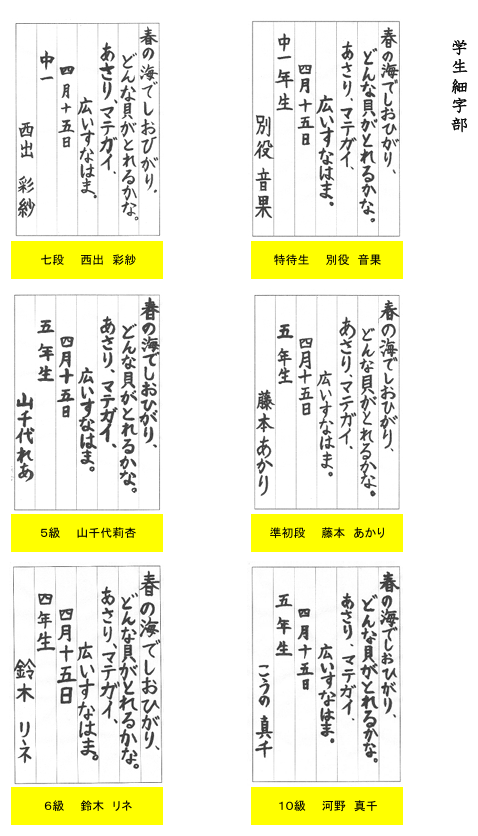 学生細字部
春の海でしおひがり、
どんな貝がとれるかな。
あさり、マテガイ、
広いすなはま。
四月十五日
中一年生
別役 音果
特待生 別役 音果
春の海でしおひがり、
どんな貝がとれるかな。
あさり、マテガイ、
広いすなはま。
四月十五日
中一
西出 彩紗
七段 西出 彩紗
春の海でしおひがり、
どんな貝がとれるかな。
あさり、マテガイ、
広いすなはま。
四月十五日
五年生
藤本あかり
準初段 藤本 あかり
春の海でしおひがり、
どんな貝がとれるかな。
あさり、マテガイ、
広いすなはま。
四月十五日
五年生
山千代れあ
5級 山千代莉杏
春の海でしおひがり、
どんな貝がとれるかな。
あさり、マテガイ、
広いすなはま。
四月十五日
五年生
こうの 真千
10級 河野 真千
春の海でしおひがり、
どんな貝がとれるかな。
あさり、マテガイ、
広いすなはま。
四月十五日
四年生
鈴木 リネ
6級 鈴木 リネ